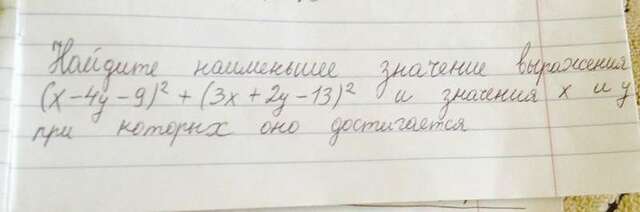 Найдите наименьшее значение выражения
(x-4y-9)² + (3x+2y-13)² и значения x и y
при которых оно достигается